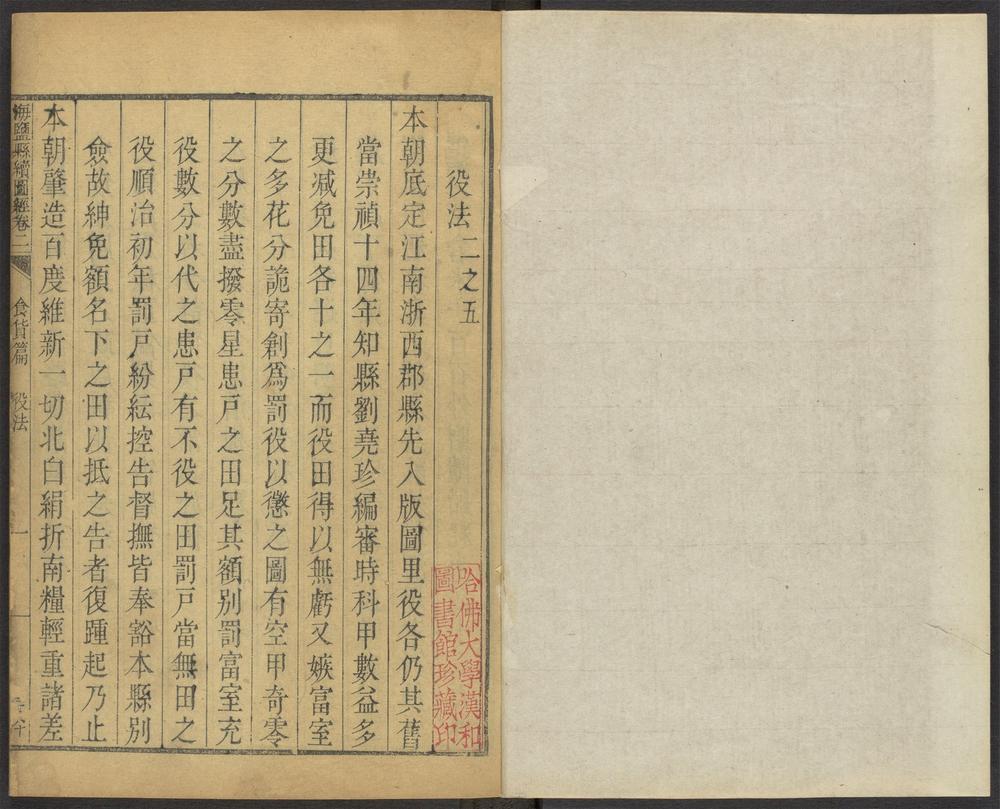 役法 二之五
本朝底定江南浙西郡縣先入版圖里役各仍其舊
當崇禎十四年知縣劉堯珍編審時科甲數益多
更減免田各十之一而役田得以無虧又嫉富室
之多花分詭寄創爲罰役以懲之圖有空甲奇零
之分數盡撥零星患戶之田足其額别罰富室充
役數分以代之患戶有不役之田罰戶當無田之
役順治初年罰戶紛紜控告督撫皆奉豁本縣別
僉故紳免額名下之田以抵之告者復踵起乃止
本朝肇造百度維新一切北白絹折南糧輕重諸差
海鹽縣續圖經卷二
食貨篇 役法
一
哈佛大學漢和
圖書館珍藏印